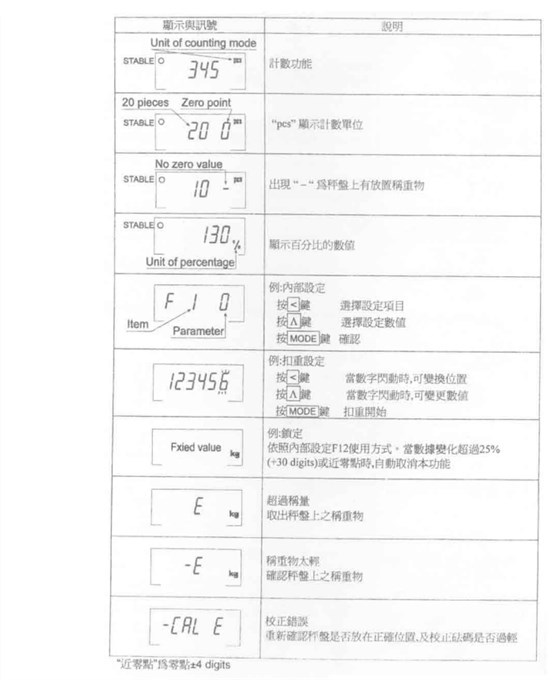 顯示與訊號 說明
Unit of counting mode
STABLE 345 pcs 計數功能
20 pieces Zero point
STABLE 20 0 pcs “pcs” 顯示計數單位
No zero value
STABLE 10 - pcs 出現 “ – “ 爲秤盤上有放置稱重物
STABLE 130 % 顯示百分比的數值
Unit of percentage
例:內部設定
F 1 0 按<鍵 選擇設定項目
按Λ鍵 選擇設定數值
Item Parameter 按MODE鍵 確認
例:扣重設定
123456 按<鍵 當數字閃動時,可變換位置
按Λ鍵 當數字閃動時,可變更數值
按MODE鍵 扣重開始
例:鎖定
Fxied value kg 依照內部設定F12使用方式。當數據變化超過25%
(+30 digits)或近零點時,自動取消本功能
E kg 超過稱量
取出秤盤上之稱重物
-E kg 稱重物太輕
確認秤盤上之稱重物
-CAL E 校正錯誤
重新確認秤盤是否放在正確位置,及校正砝碼是否過輕
“近零點”爲零點±4 digits